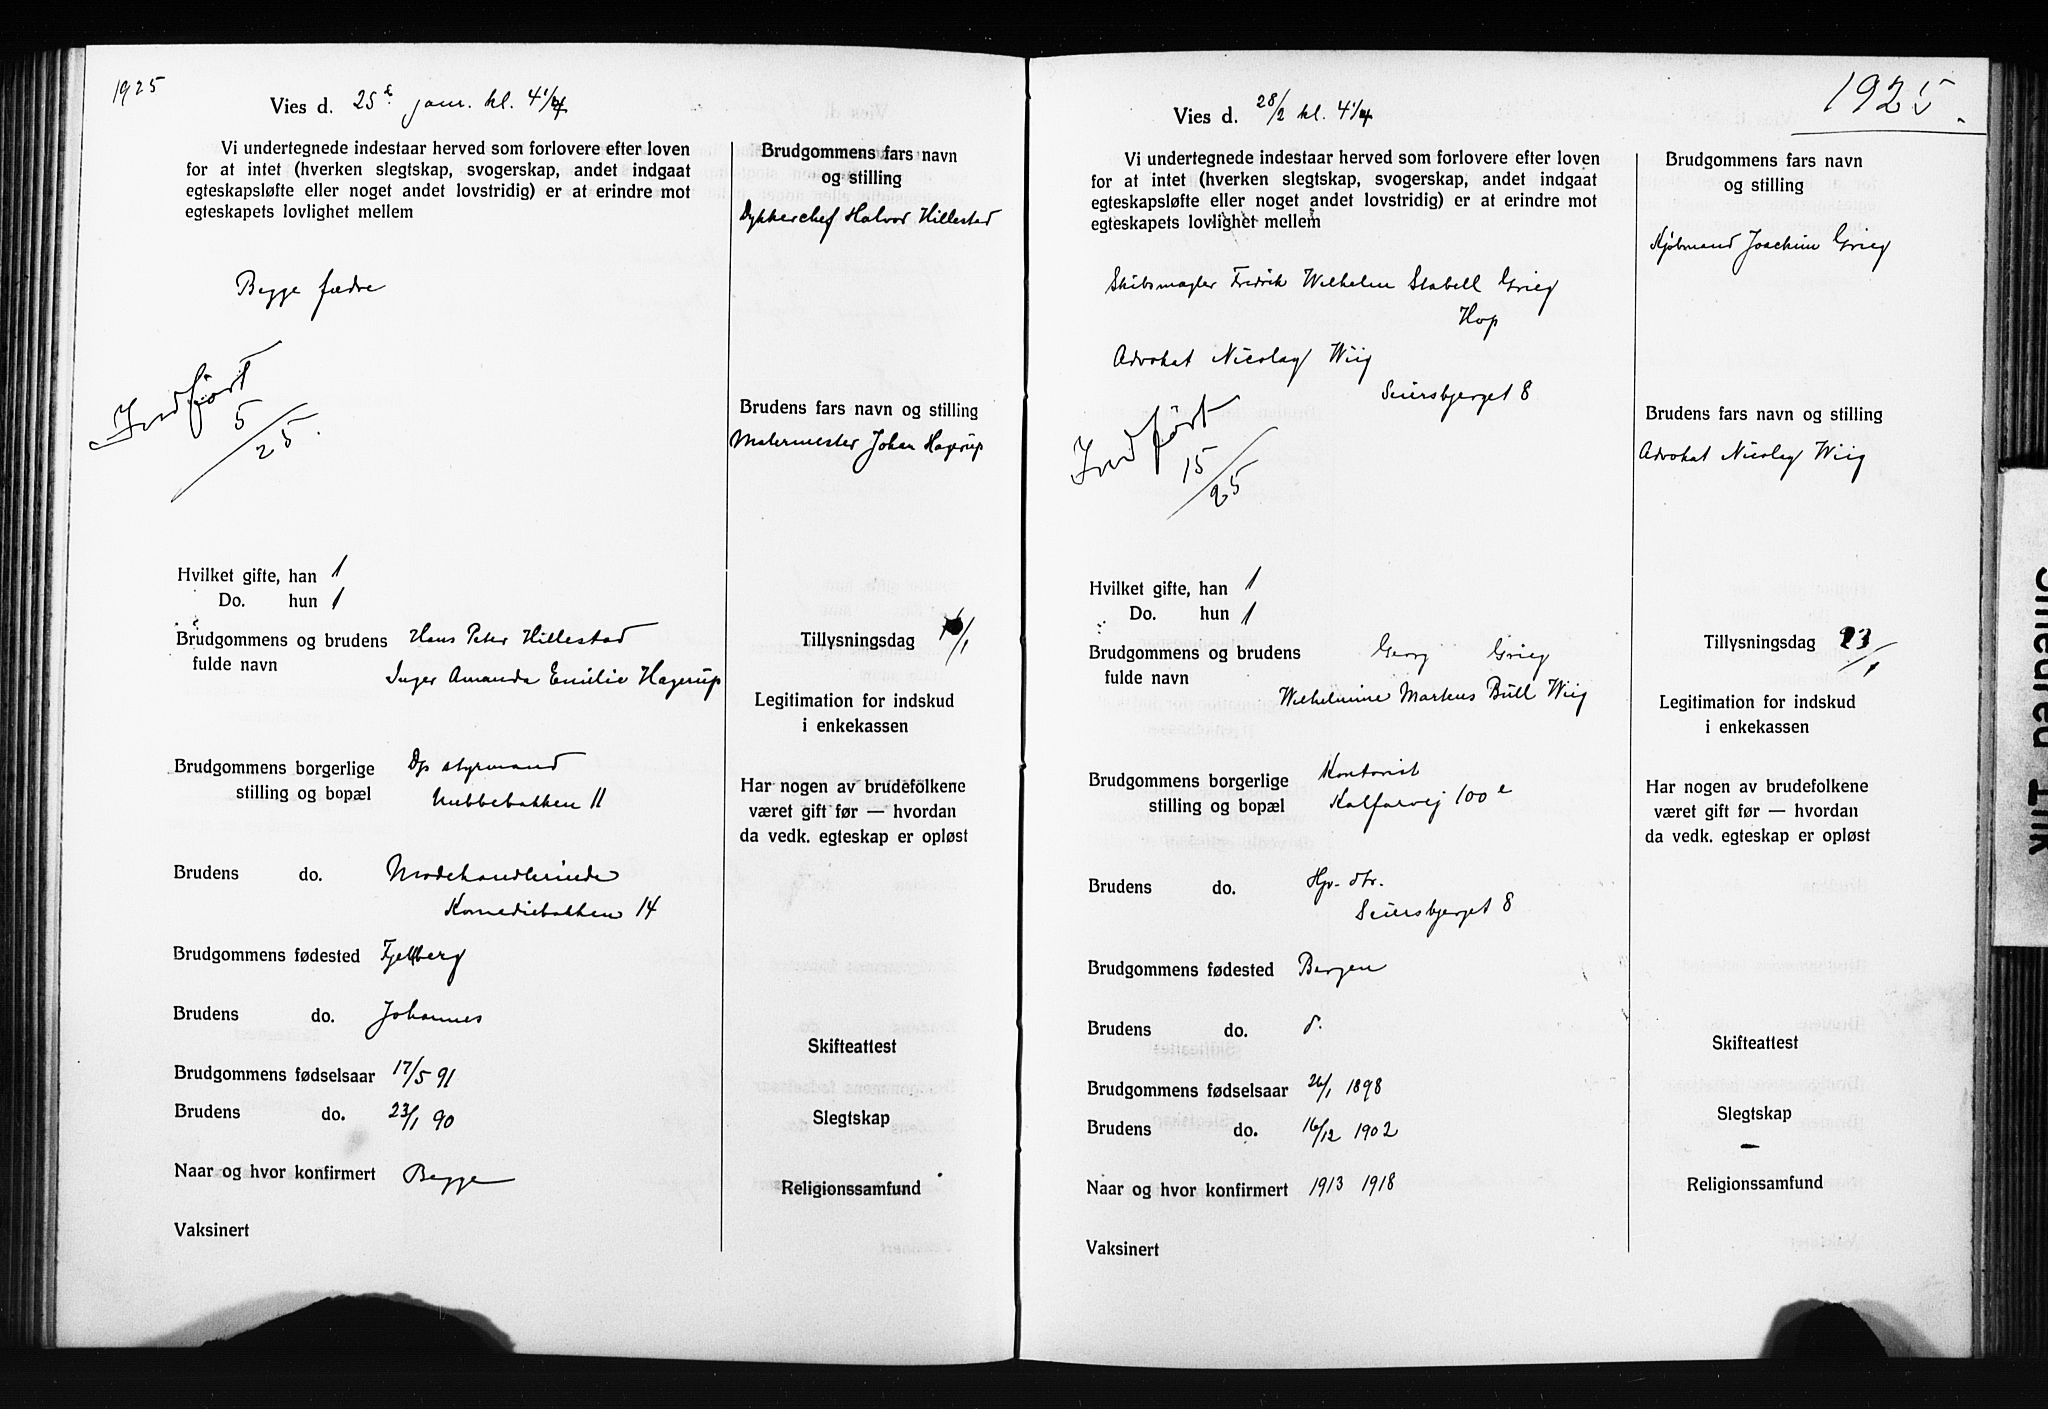 1925
Vies d. 25de janr. kl. 4 1/4
Vi undertegnede indestaar herved som forlovere efter loven
for at intet (hverken slegtskap, svogerskap, andet indgaat
egteskapsløfte eller noget andet lovstridig) er at erindre mot
egteskapets lovlighet mellem
Begge fædre
Indført
5/25.
Hvilket gifte, han 1
Do. hun 1
Brudgommens og brudens Hans Peter Hillestad
fulde navn Inger Amanda Emilie Hagerup
Brudgommens borgerlige Dp styrmand
stilling og bopæl Nubbebakken 11
Brudens do. Modehandlerinde
Komediebakken 14
Brudgommens fødested Fjelberg
Brudens do. Johannes
Brudgommens fødselsaar 17/5 91
Brudens do. 23/1 90
Naar og hvor konfirmert Begge
Vaksinert
Brudgommens fars navn
og stilling
Dykkerchef Halvor Hillestad
Brudens fars navn og stilling
Malermester Johan Hagerup
Tillysningsdag /1
Legitimation for indskud
i enkekassen
Har nogen av brudefolkene
været gift før — hvordan
da vedk. egteskap er opløst
Skifteattest
Slegtskap
Religionssamfund
1925.
Vies d. 28/2 kl. 4 1/4
Vi undertegnede indestaar herved som forlovere efter loven
for at intet (hverken slegtskap, svogerskap, andet indgaat
egteskapsløfte eller noget andet lovstridig) er at erindre mot
egteskapets lovlighet mellem
Skibsmægler Fredrik Wilhelm Stabell Grieg
Hop
Advokat Nicolay Wiig
Seiersbjerget 8
Indført
15/25
Hvilket gifte, han 1
Do. hun 1
Brudgommens og brudens Georg Grieg
fulde navn Wilhelmine Markus Bull Wiig
Brudgommens borgerlige Kontorist
stilling og bopæl Kalfarvej 100 e
Brudens do. Hjv. dtr.
Seiersbjerget 8
Brudgommens fødested Bergen
Brudens do. d.
Brudgommens fødselsaar 26/1 1898
Brudens do. 16/12 1902
Naar og hvor konfirmert 1913 1918
Vaksinert
Brudgommens fars navn
og stilling
Kjøbmand Joachim Grieg
Brudens fars navn og stilling
Advokat Nicolay Wiig
Tillysningsdag 23/1
Legitimation for indskud
i enkekassen
Har nogen av brudefolkene
været gift før — hvordan
da vedk. egteskap er opløst
Skifteattest
Slegtskap
—
Religionssamfund